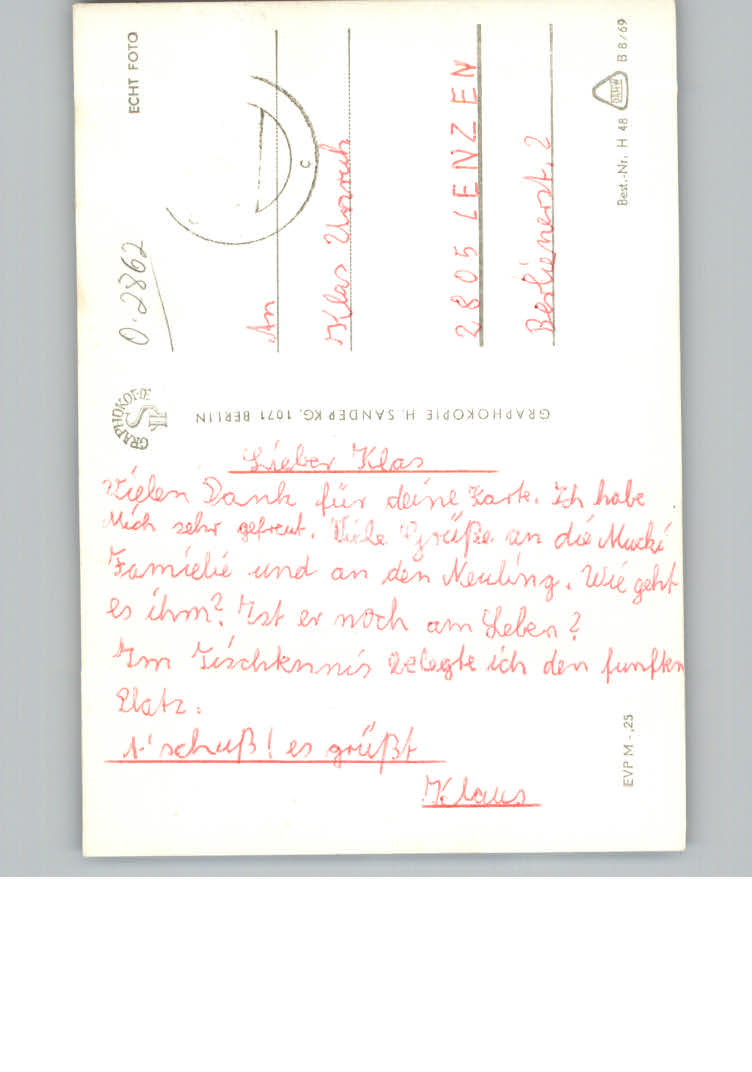 Lieber Klas
Vielen Dank für deine Karte. Ich habe
Mich sehr gefreut. Viele Grüße an die Mucki
Familie und an den Neuling. Wie geht
es ihm? Ist er noch am Leben?
Im Tischtennis belegte ich den funften
Platz.
t'schuß! es grüßt
Klaus
An
Klas Unruh
2805 LENZEN
Berlienerst. 2
0.2862
ECHT FOTO
C
GRAPHOKOPIE
GRAPHOKOPIE H. SANDER KG. 1071 BERLIN
Best.-Nr. H 48 B 8/69
EVP M -,25